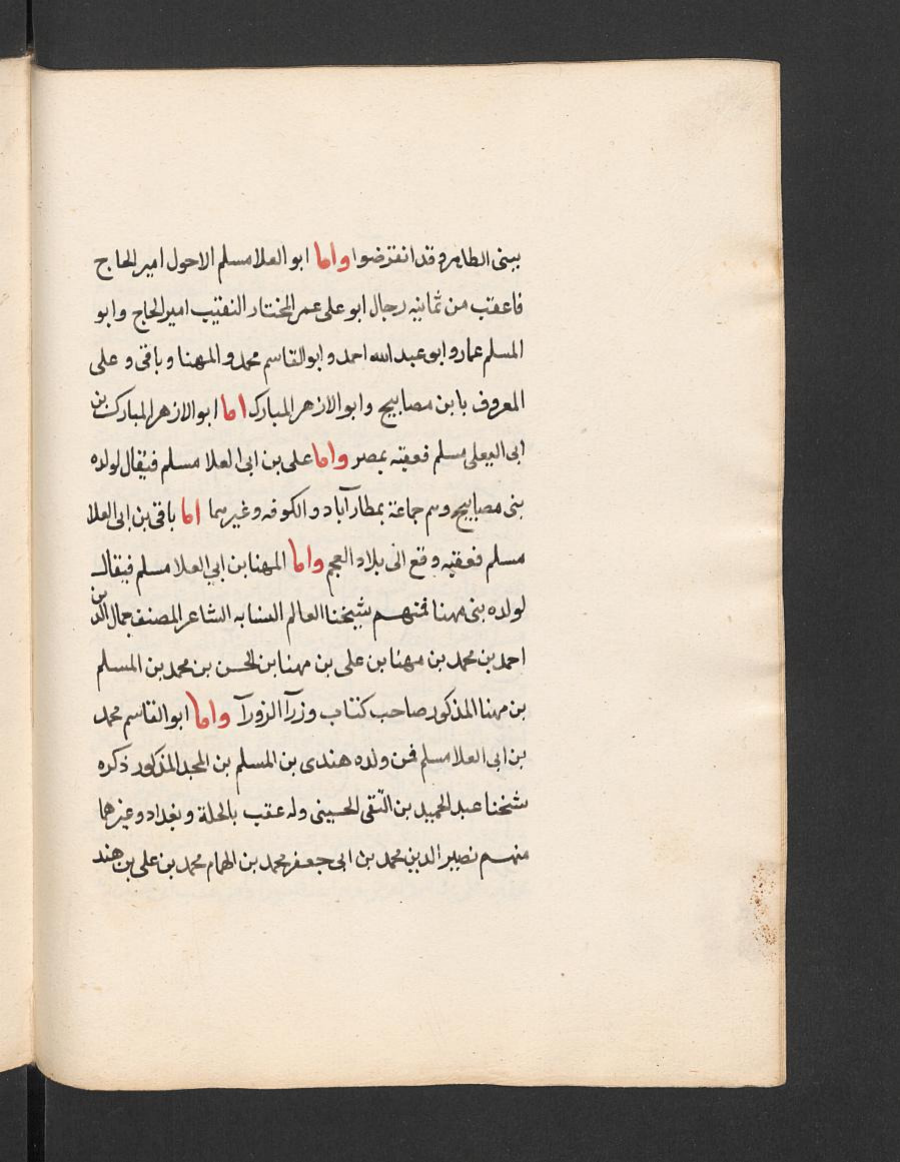 ببنى الطاهر وقد انقرضوا واما ابو العلا مسلم الاحول امير الحاج
فاعقب من ثمانيه رجال ابو على عمر المختار النقيب امير الحاج وابو
المسلم عمار وابو عبد الله احمد وابو القاسم محمد والمهنا وباقى وعلى
المعروف بابن مصابيح وابو الازهر المبارك اما ابو الازهر المبارك بن
ابى اليعلى مسلم فعقبه بمصر واما على بن ابى العلا مسلم فيقال لولده
بنى مصابيح وهم جماعة بمطارآباد والكوفه وغيرهما اما باقى بن ابى العلا
مسلم فعقبه وقع الى بلاد العجم واما المهنا بن ابي العلا مسلم فيقال
لولده بنى مهنا فمنهم شيخنا العالم النسابه الشاعر المصنف جمال الدين
احمد بن محمد بن مهنا بن على بن مهنا بن الحسن بن محمد بن المسلم
بن مهنا المذكور صاحب كتاب وزرآ الزورآ واما ابو القاسم محمد
بن ابى العلا مسلم فمن ولده هندى بن المسلم بن المجد المذكور ذكره
شخنا عبد الحميد بن التقى الحسينى وله عقب بالحلة وبغداد وغيرهما
منهم نصير الدين محمد بن ابى جعفر محمد بن الهمام محمد بن على بن هند